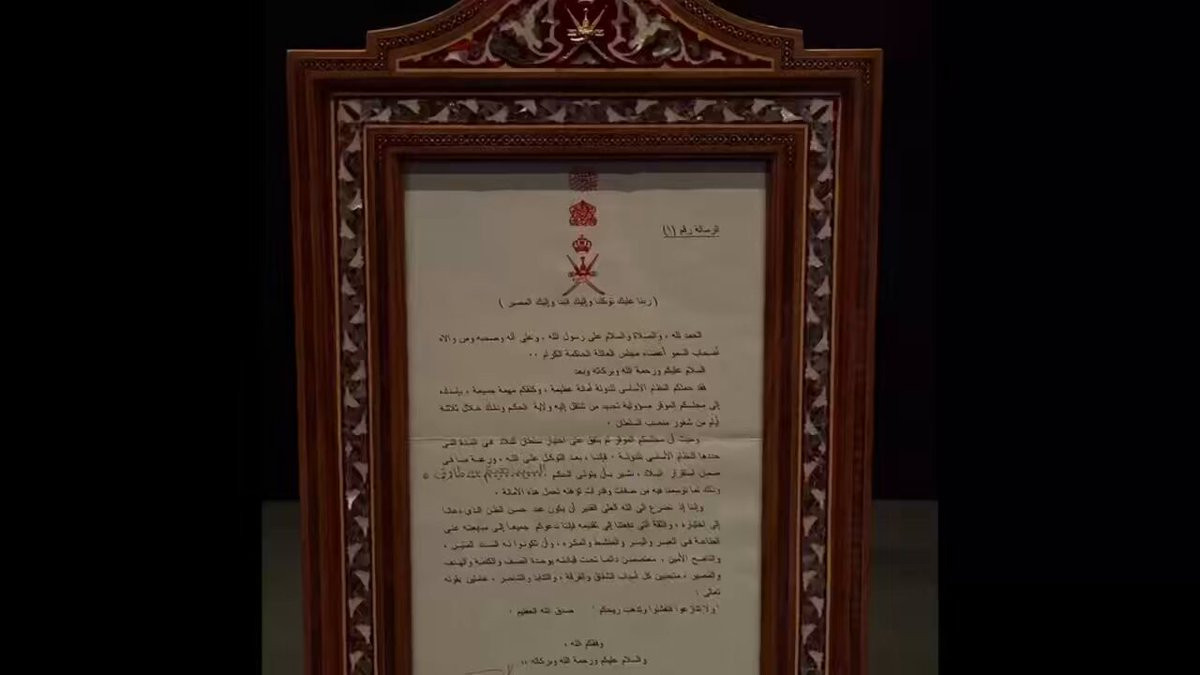 الرسالة رقم (١)
( ربنا عليك توكلنا وإليك أنبنا وإليك المصير )
الحمد لله ، والصلاة والسلام على رسول الله ، وعلى آله وصحبه ومن والاه
أصحاب السمو أعضاء مجلس العائلة الحاكمة الكرام ..
السلام عليكم ورحمة الله وبركاته وبعد
فقد حملكم النظام الأساسي للدولة أمانة عظيمة ، وكلفكم مهمة جسيمة ، بإسناده
إلى مجلسكم الموقر مسؤولية تحديد من تنتقل إليه ولاية الحكم وذلك خلال ثلاثة
أيام من شغور منصب السلطان .
وحيث أن مجلسكم الموقر لم يتفق على اختيار سلطان للبلاد في المدة التي
حددها النظام الأساسي للدولة . فإننا ، بعد التوكل على الله ، ورغبة منا في
ضمان استقرار البلاد ، نشير بأن يتولى الحكم السيد هيثم بن طارق
وذلك لما توسمنا فيه من صفات وقدرات تؤهله لحمل هذه الأمانة .
وإننا إذ نضرع إلى الله العلي القدير أن يكون عند حسن الظن الذي دعانا
إلى اختياره ، والثقة التي دفعتنا إلى تقديمه فإننا ندعوكم جميعا إلى مبايعته على
الطاعة في العسر واليسر والمنشط والمكره ، وأن تكونوا له السند المتين ،
والناصح الأمين ، معتصمين دائما تحت قيادته بوحدة الصف والكلمة والهدف
والمصير ، متجنبين كل أسباب الشقاق والفرقة ، والتنابذ والتناحر ، عاملين بقوله
تعالى :
"ولا تنازعوا فتفشلوا وتذهب ريحكم " صدق الله العظيم .
وفقكم الله ،
والسلام عليكم ورحمة الله وبركاته ،،